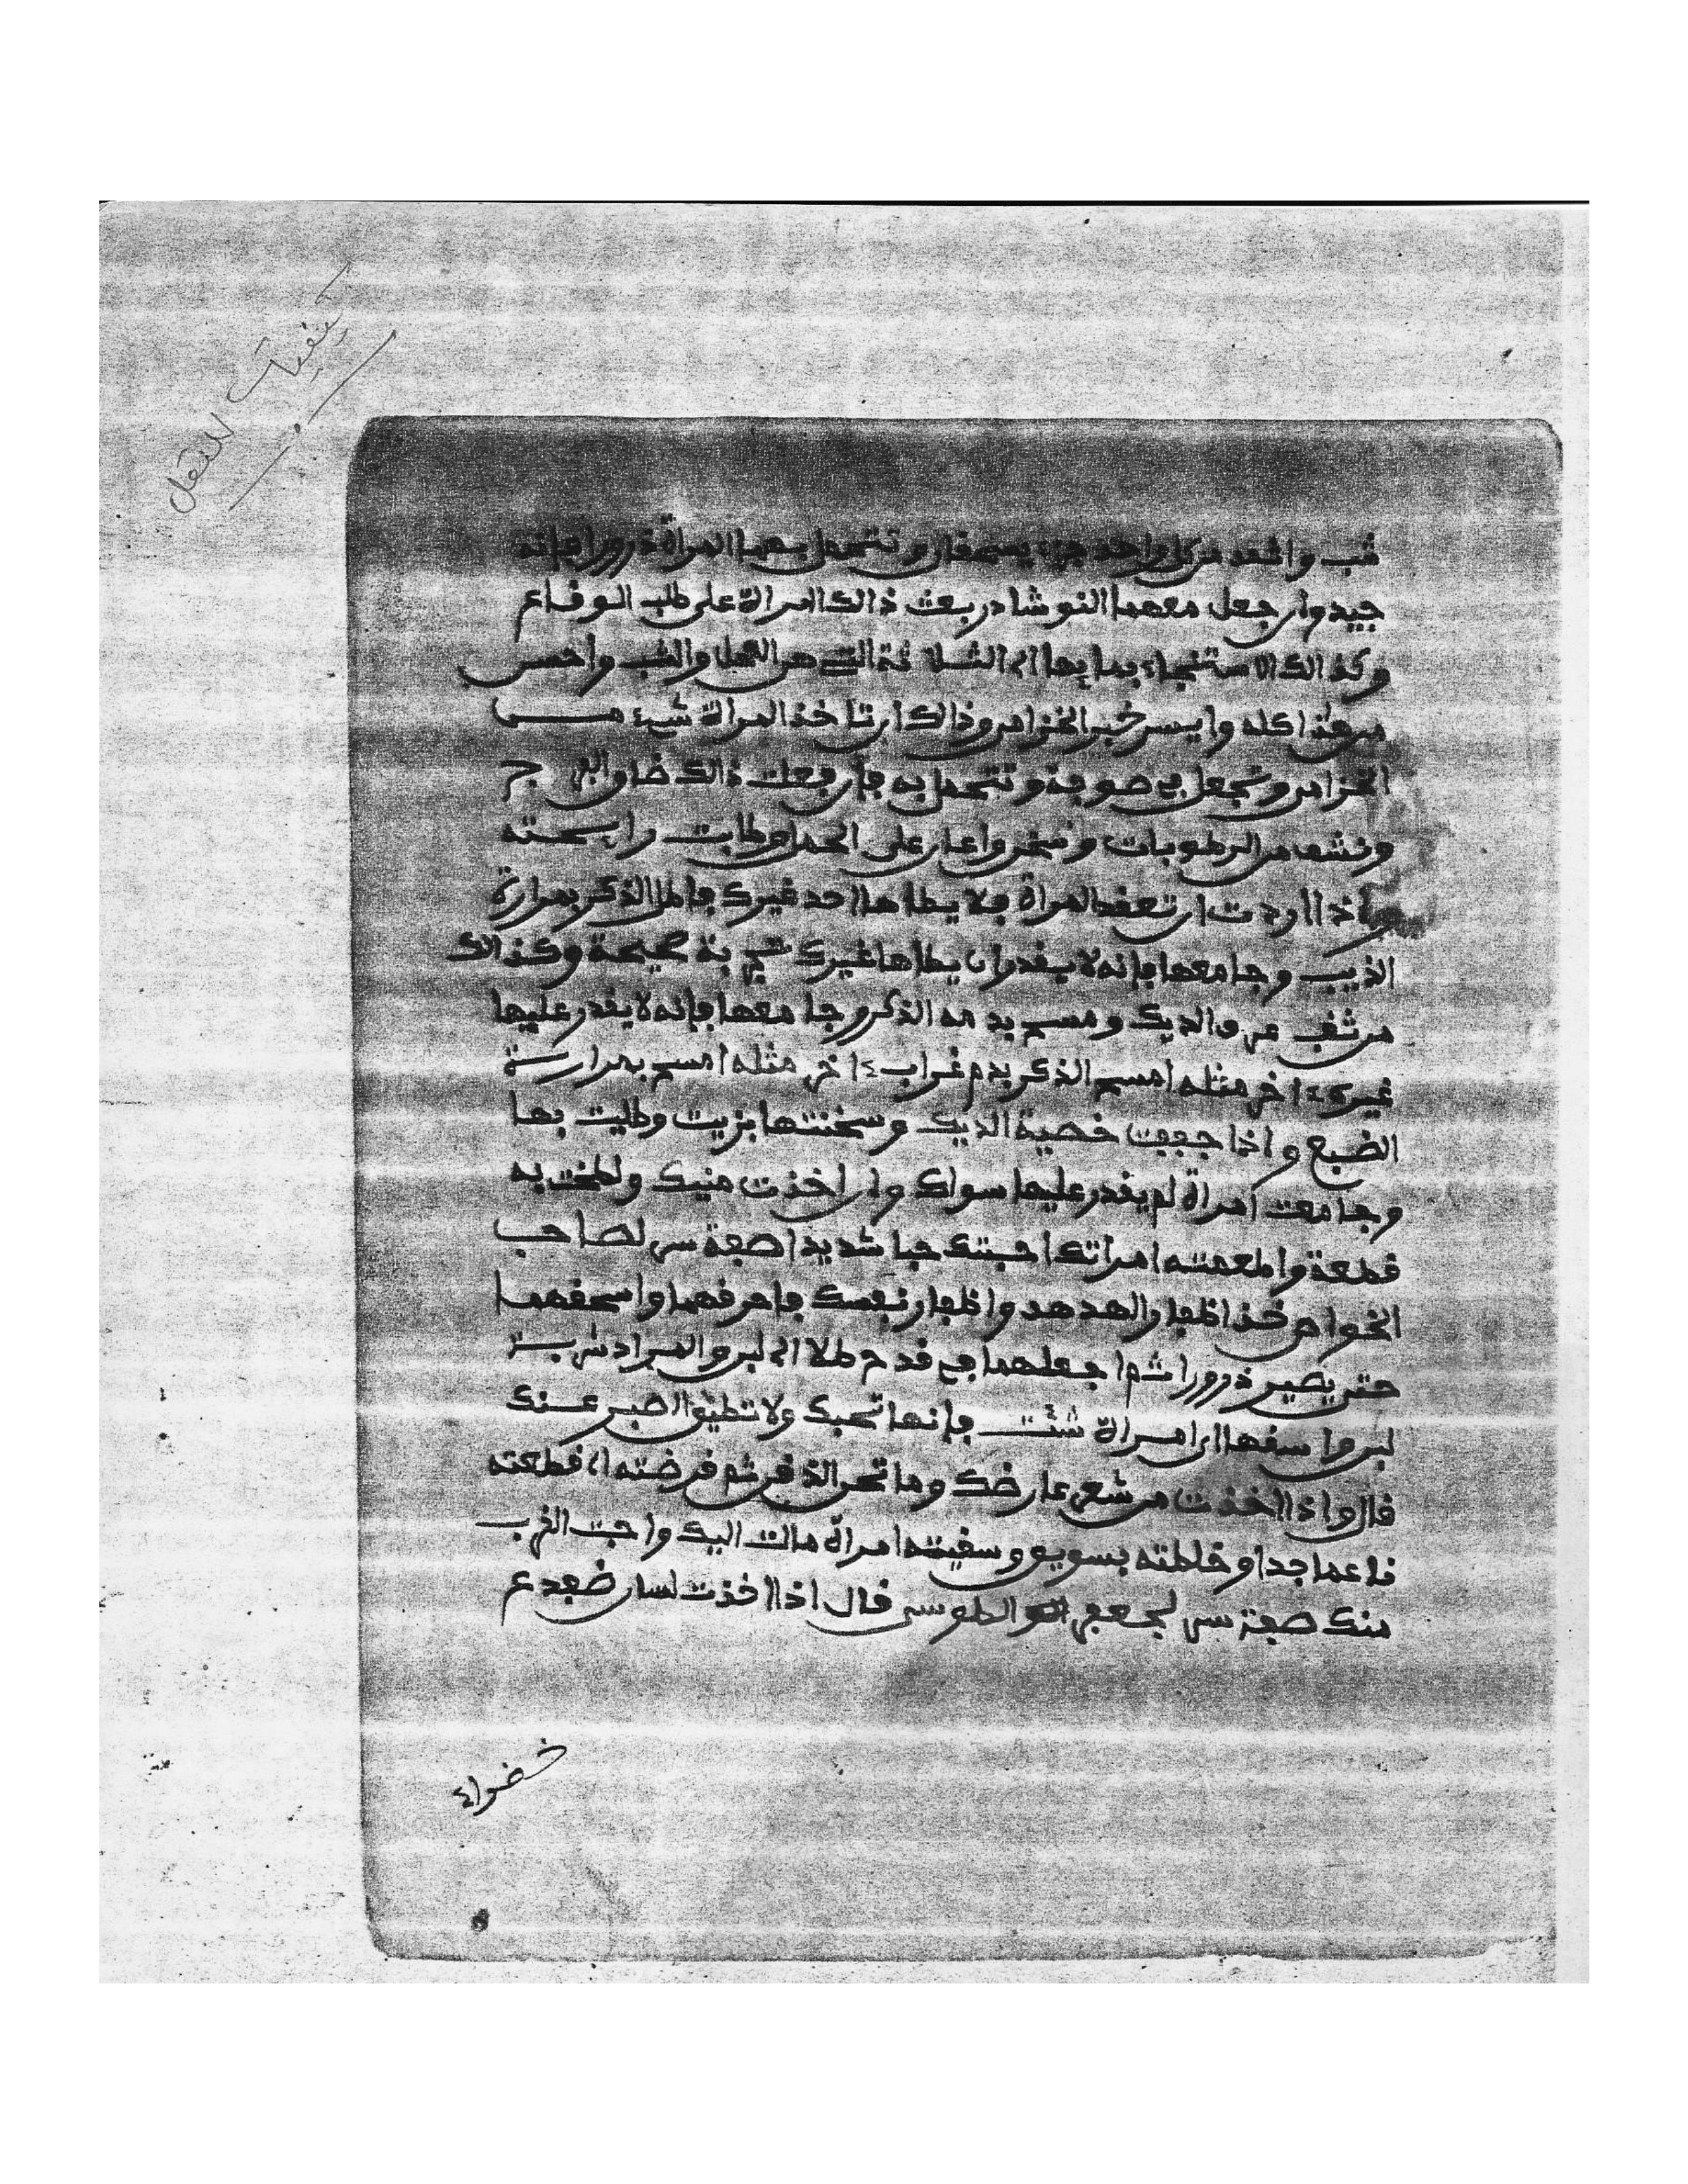 شب واثمد من كل واحد جزء يسحفان وتتحمل بهما المراة ذرورا فإنه
جيد وإن جعل معهما النوشادر بعث ذالك المراة على طلب الوفاع
وكذالك الاستنجاء بماء
من هذا كله وايسر خبر الخزام وذالك ان تاخذ المراة شيء مــن
الخزام وتجعل في صوفة وتتحمل به فإن فعلت ذالك ضاق الفرج
ونشف من الرطوبات وسخن واعان على الحمل وطابت رايحته
وإذا اردت ان تعقد المراة فلا يطاها احد غيرك فاطل الذكر بمرارة
الذيب وجامعها فإنه لا يقدر ان يطاها غيرك مجربة صحيحة وكذالك
من ثقب عرف الديك ومسح بدمه الذكر وجامعها فإنه لا يقدر عليها
غيرك ءاخر مثله امسح الذكر بدم غراب ءاخر مثله امسح بمرارة
الضبع واذا جففت خصية الديك وسخنتها بزيت وطليت بها
وجامعت امراة لم يقدر عليها سواك وان اخذت منيك ولطخت به
قطعة واطعمته امراتك احبتك حبا شديدا صفة سر لصاحب
الخواص خذ اظفار الهدهد واظفار نفسك فاحرقهما واسحقهما
حتى يصير ذرورا ثم اجعلهما في قدح طلا
لبن واسقها اي امراة شئت فإنها تحبك ولا تطيق الصبر عنك
قال واذا اخذت من شعر عارضك وما تحت الذقن ثم قرضته او قطعته
ناعما جدا وخلطته بسويق وسقيته امراة مالت اليك واحبت القرب
منك صفة سر لجعفر الطوسي قال اذا اخذت لسان ضفدع
خضراء